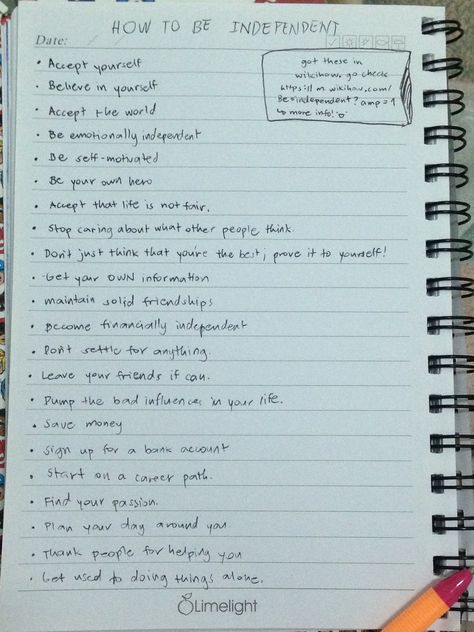 HOW TO BE INDEPENDENT
Date:
got these in
wikihow. go check
https://m.wikihow.com/
Be=independent?amp=1
↳ more info! 'o'
• Accept yourself
• Believe in yourself
• Accept the world
• Be emotionally independent
• Be self-motivated
• Be your own hero
• Accept that life is not fair.
• Stop caring about what other people think
• Don't just think that you're the best; prove it to yourself!
• Get your OWN information
• maintain solid friendships
• Become financially independent
• Don't settle for anything.
• Leave your friends if can.
• Dump the bad influences in your life.
• Save money
• sign up for a bank account
• Start on a career path.
• Find your passion.
• Plan your day around you
• Thank people for helping you
• Get used to doing things alone.
Limelight